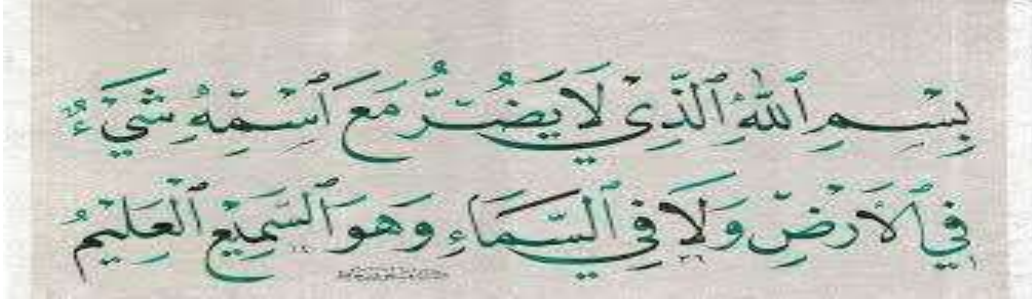 بِسْمِ ٱللهِ ٱلَّذِي لَا يَضُرُّ مَعَ ٱسْمِهِ شَيْءٌ
فِي ٱلْأَرْضِ وَلَا فِي ٱلسَّمَاءِ وَهُوَ ٱلسَّمِيعُ ٱلْعَلِيمُ